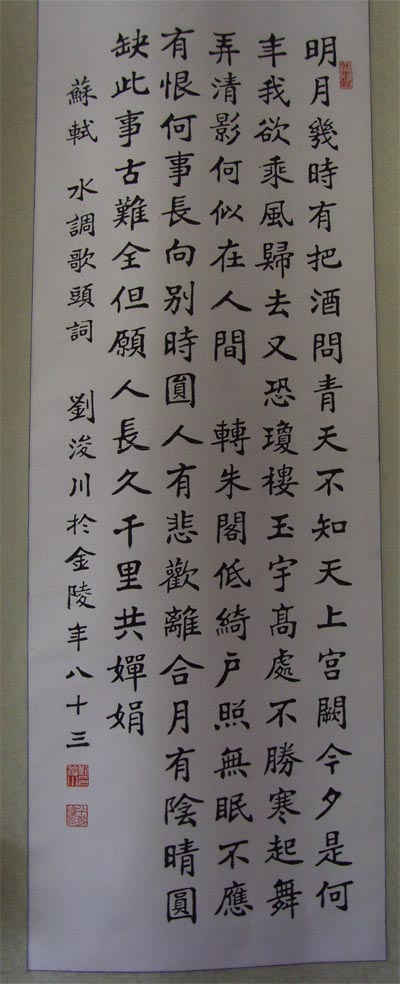 明月幾時有把酒問青天不知天上宮闕今夕是何
年我欲乘風歸去又恐瓊樓玉宇高處不勝寒起舞
弄清影何似在人間　轉朱閣低綺戶照無眠不應
有恨何事長向別時圓人有悲歡離合月有陰晴圓
缺此事古難全但願人長久千里共嬋娟
蘇軾　水調歌頭詞　劉浚川於金陵年八十三